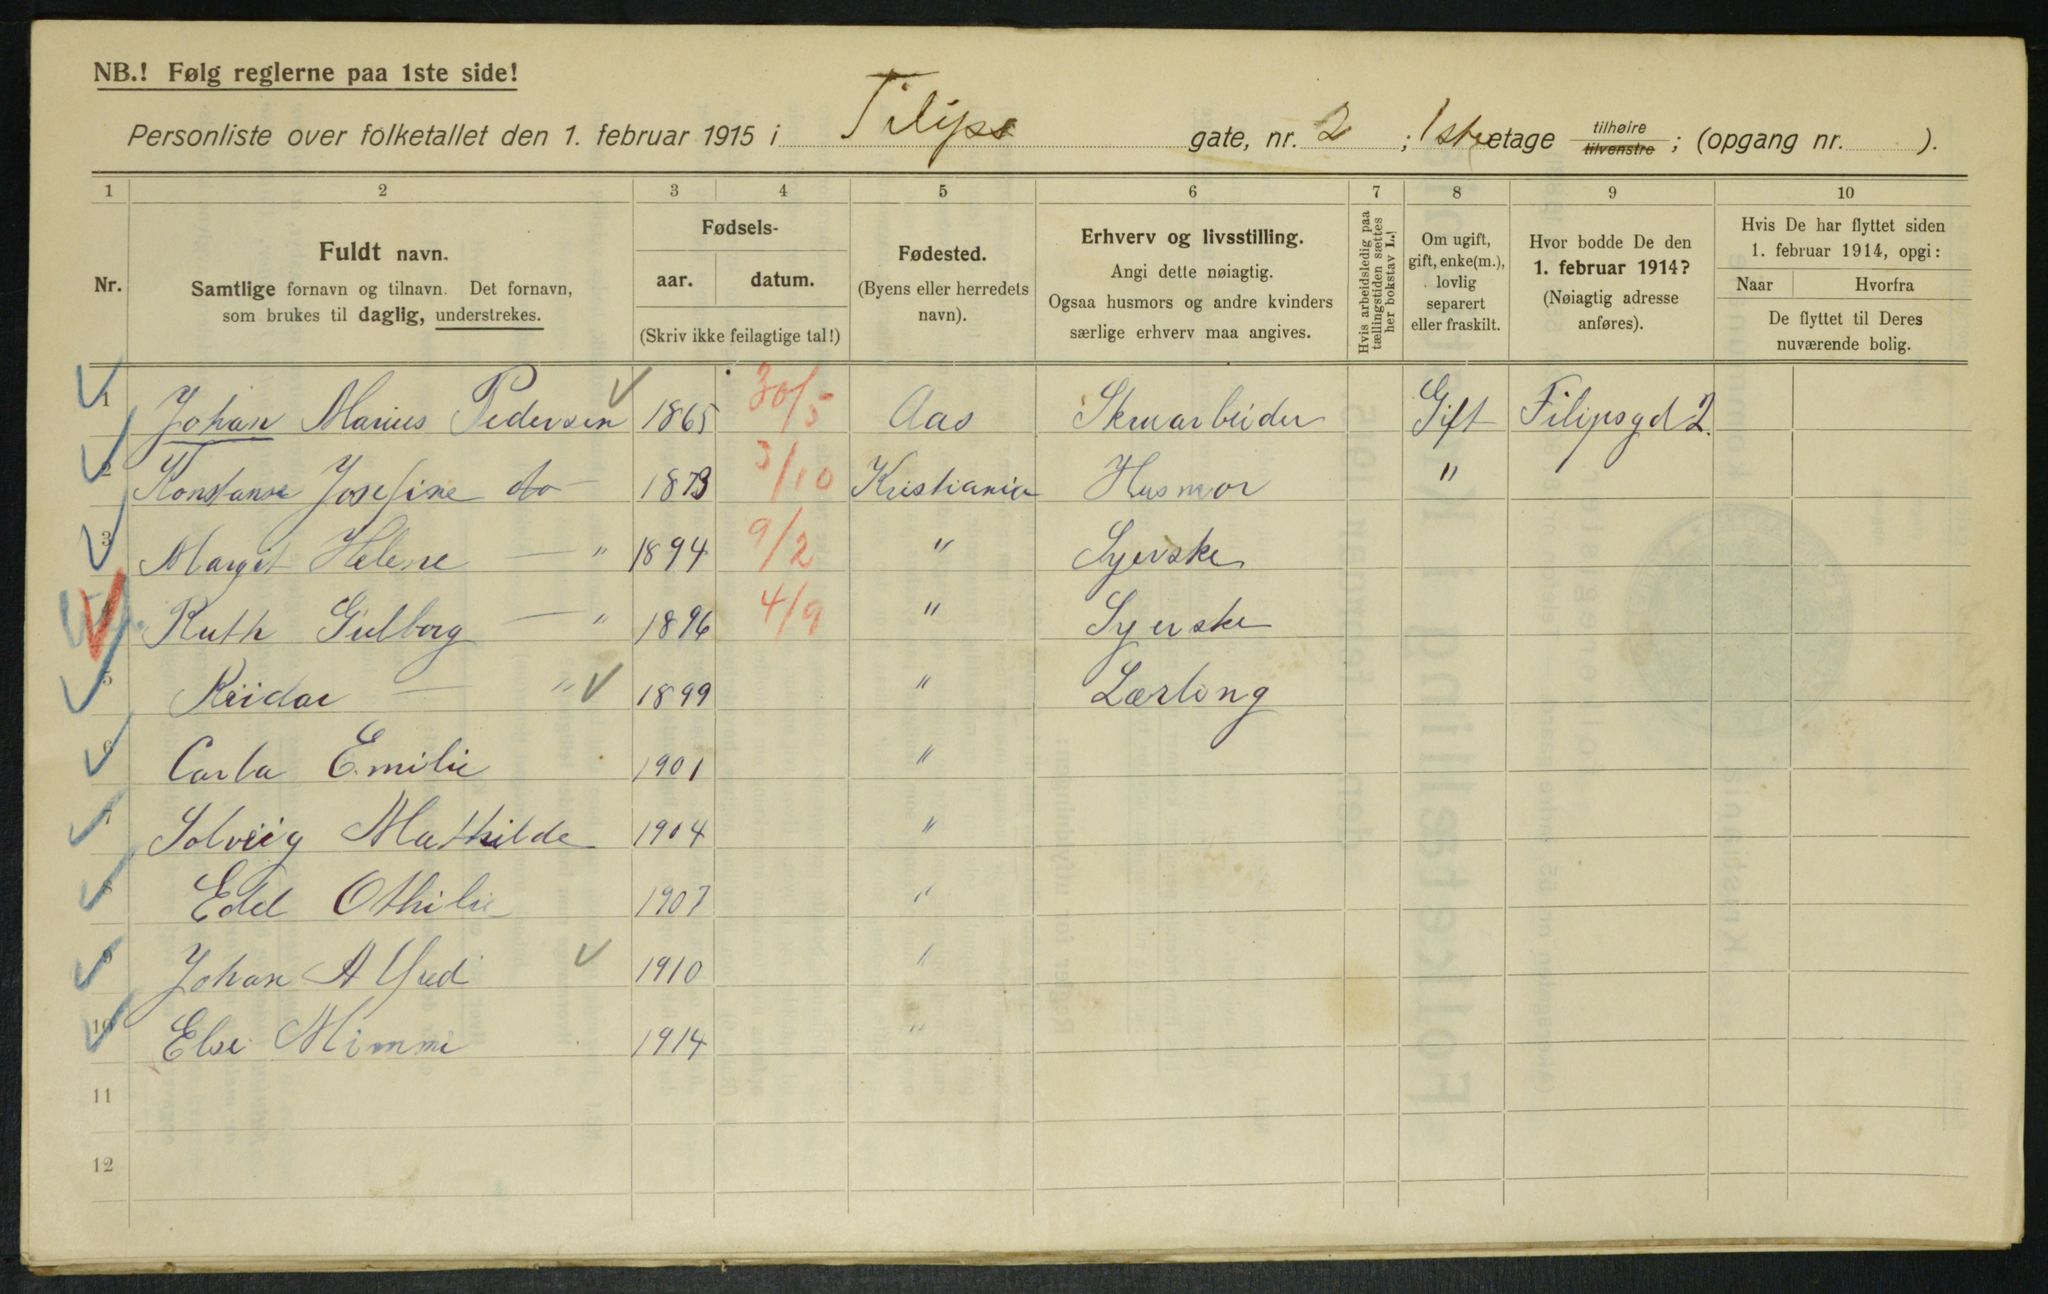 NB.! Følg reglerne paa 1ste side!
Personliste over folketallet den 1. februar 1915 i Filips gate, nr. 2 ; 1ste etage tilhøire tilvenstre ; (opgang nr. ).
1 2 3 4 5 6 7 8 9 10
Nr.
Fuldt navn.
Samtlige fornavn og tilnavn. Det fornavn,
som brukes til daglig, understrekes.
Fødsels-
aar. datum.
(Skriv ikke feilagtige tal!)
Fødested.
(Byens eller herredets
navn).
Erhverv og livsstilling.
Angi dette nøiagtig.
Ogsaa husmors og andre kvinders
særlige erhverv maa angives.
Hvis arbeidsledig paa
tællingstiden sættes
her bokstav L.!
Om ugift,
gift, enke(m.),
lovlig
separert
eller fraskilt.
Hvor bodde De den
1. februar 1914?
(Nøiagtig adresse
anføres).
Hvis De har flyttet siden
1. februar 1914, opgi:
Naar Hvorfra
De flyttet til Deres
nuværende bolig.
1 Johan Marius Pedersen 1865 30/5 Aas Skruarbeider Gift Filipsgd 2.
2 Konstanse Josefine do 1873 3/10 Kristiania Husmor "
3 Margit Helene — " 1894 9/2 " Syerske
4 Ruth Gulborg — " 1896 4/9 " Syerske
5 Reidar — " 1899 " Lærling
6 Carla Emilie 1901 "
7 Solveig Mathilde 1904 "
8 Edel Othilie 1907 "
9 Johan Alfred 1910 "
10 Else Mimmi 1914 "
11
12